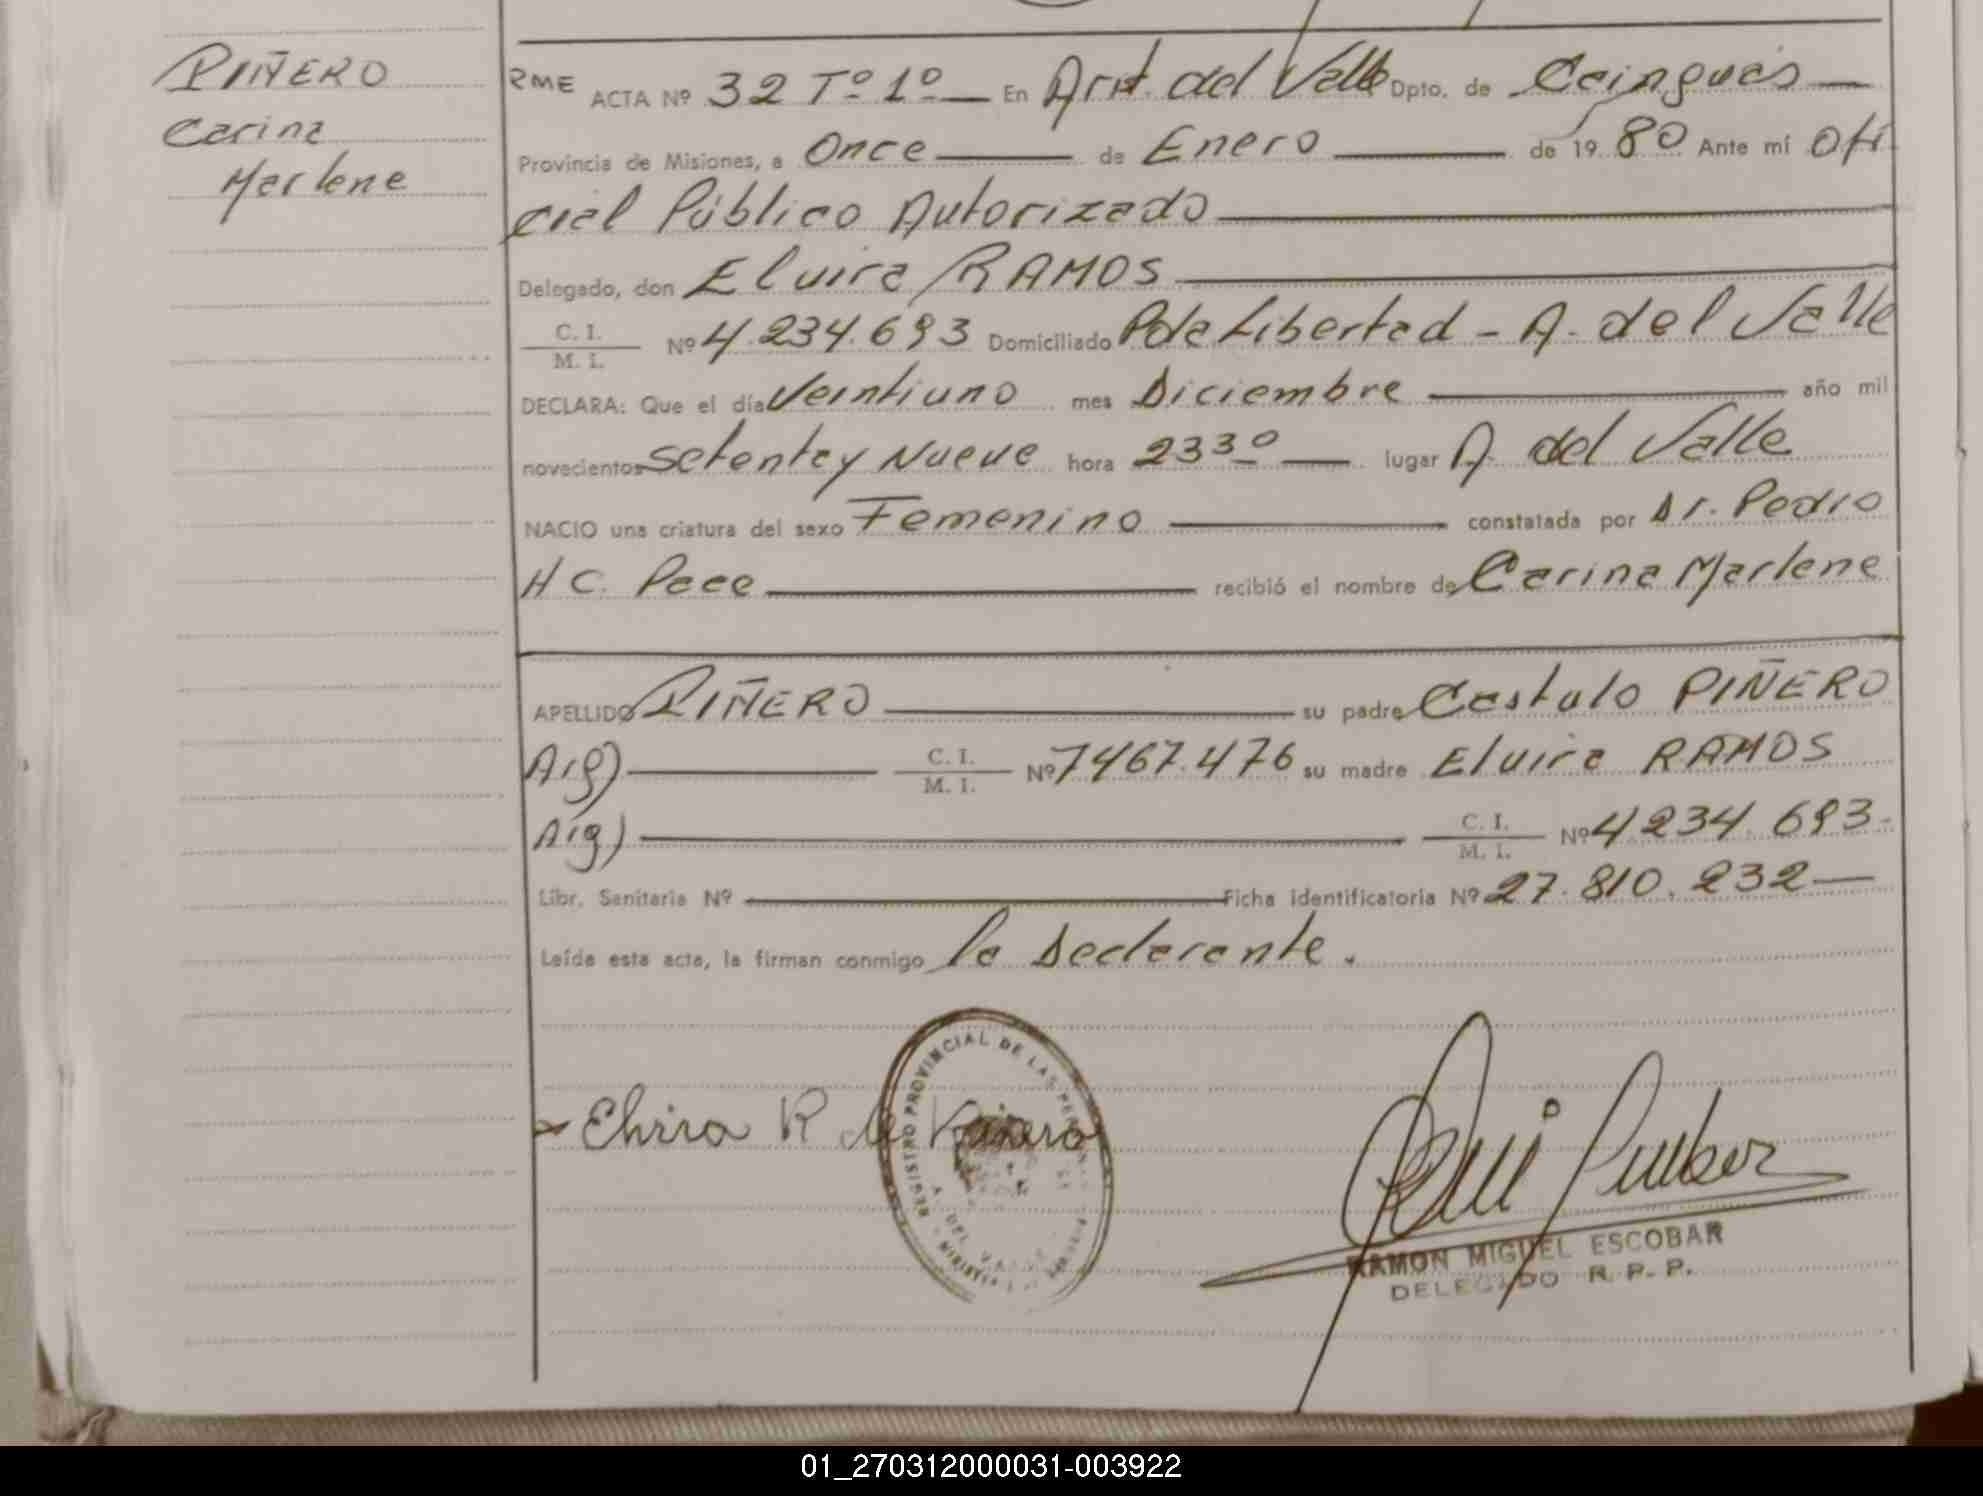 PIÑERO
Carina
Marlene
RME ACTA Nº 32 Tº 1º En Arist. del Valle Dpto. de Cainguás
Provincia de Misiones, a Once de Enero de 1980 Ante mí Ofi
cial Público Autorizado
Delegado, don Elvira RAMOS
C. I.
M. I. Nº 4.234.693 Domiciliado Pda Libertad - A. del Valle
DECLARA: Que el día Veintiuno mes Diciembre año mil
novecientos Setenta y Nueve hora 23 30 lugar A. del Valle
NACIO una criatura del sexo Femenino constatada por Dr. Pedro
H C. Pace recibió el nombre de Carina Marlene
APELLIDO PIÑERO su padre Castulo PIÑERO
Arg) C. I. M. I. Nº 7467.476 su madre Elvira RAMOS
Arg) C. I. M. I. Nº 4234.693-
Libr. Sanitaria Nº Ficha identificatoria Nº 27.810.232
Leída esta acta, la firman conmigo la Declarante.
REGISTRO PROVINCIAL DE LAS PERSONAS
A. DEL VALLE
Elvira R de
RAMON MIGUEL ESCOBAR
DELEGADO R. P. P.
01_270312000031-003922